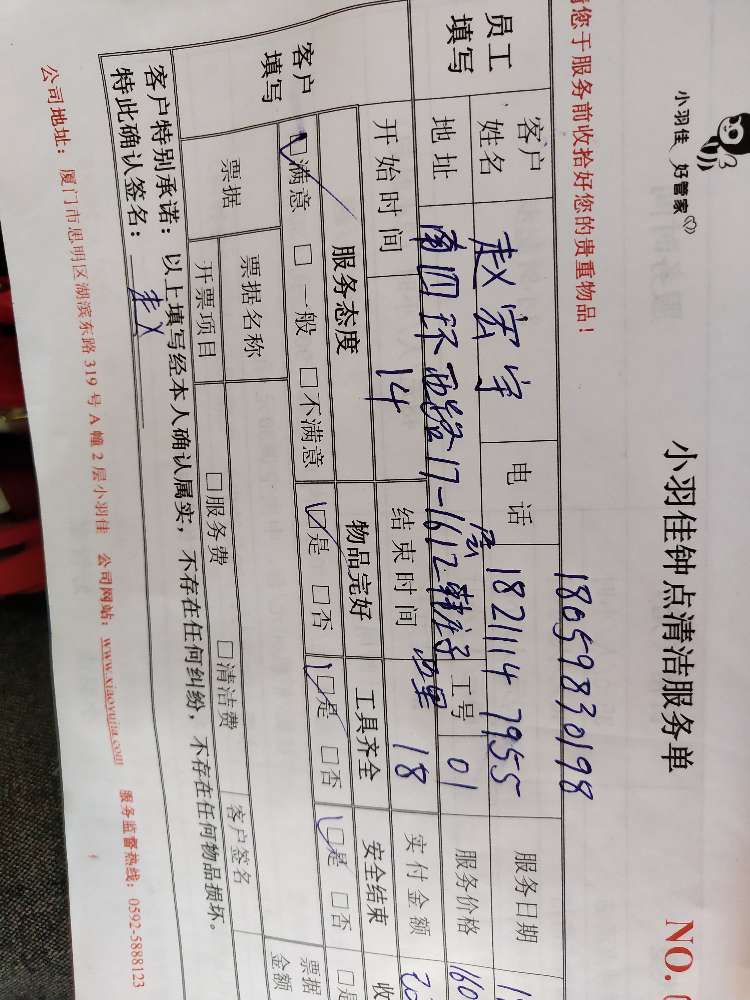 小羽佳 好管家
小羽佳钟点清洁服务单
NO.
您于服务前收拾好您的贵重物品！
18059830198
员工填写
客户姓名 赵宏宇 电话 18211147955 服务日期
地址 南四环西路17-1612 工号 01 服务价格 160
开始时间 14 结束时间 18 实付金额
客户填写
服务态度 物品完好 工具齐全 安全结束
☑满意 □一般 □不满意 ☑是 □否 ☑是 □否 ☑是 □否
票据 票据名称 票据金额
开票项目 □服务费 □清洁费 客户签名
客户特别承诺：以上填写经本人确认属实，不存在任何纠纷，不存在任何物品损坏。
特此确认签名：赵
公司地址：厦门市思明区湖滨东路319号A幢2层小羽佳 公司网站：www.xiaoyujia.com 服务监督热线：0592-5888123